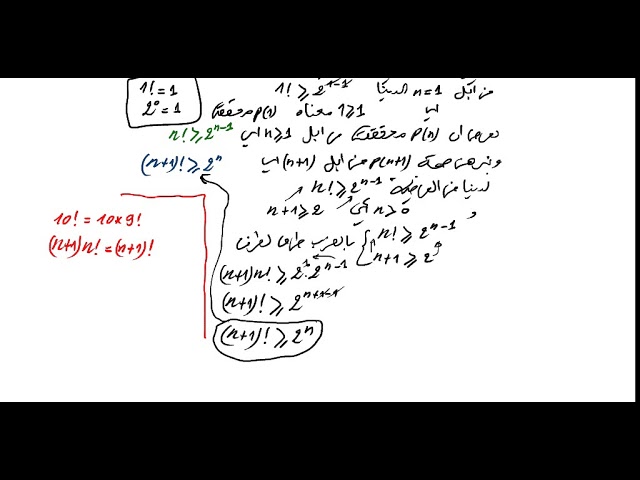 من أجل n=1 لدينا 1! ⩾ 2^{1-1}
1! = 1
2° = 1
أي 1⩾1 معناه P(1) محققة
نفرض أن P(n) محققة من أجل n⩾1 أي n! ⩾ 2^{n-1}
ونبرهن صحة P(n+1) من أجل (n+1) أي (n+1)! ⩾ 2^n
لدينا من الفرضية n! ⩾ 2^{n-1}
n+1 ⩾ 2
n! ⩾ 2^{n-1}
n+1 ⩾ 2
بالضرب طرف لطرف
(n+1)n! ⩾ 2^1 . 2^{n-1}
(n+1)! ⩾ 2^{n+1-1}
(n+1)! ⩾ 2^n
10! = 10×9!
(n+1)n! = (n+1)!